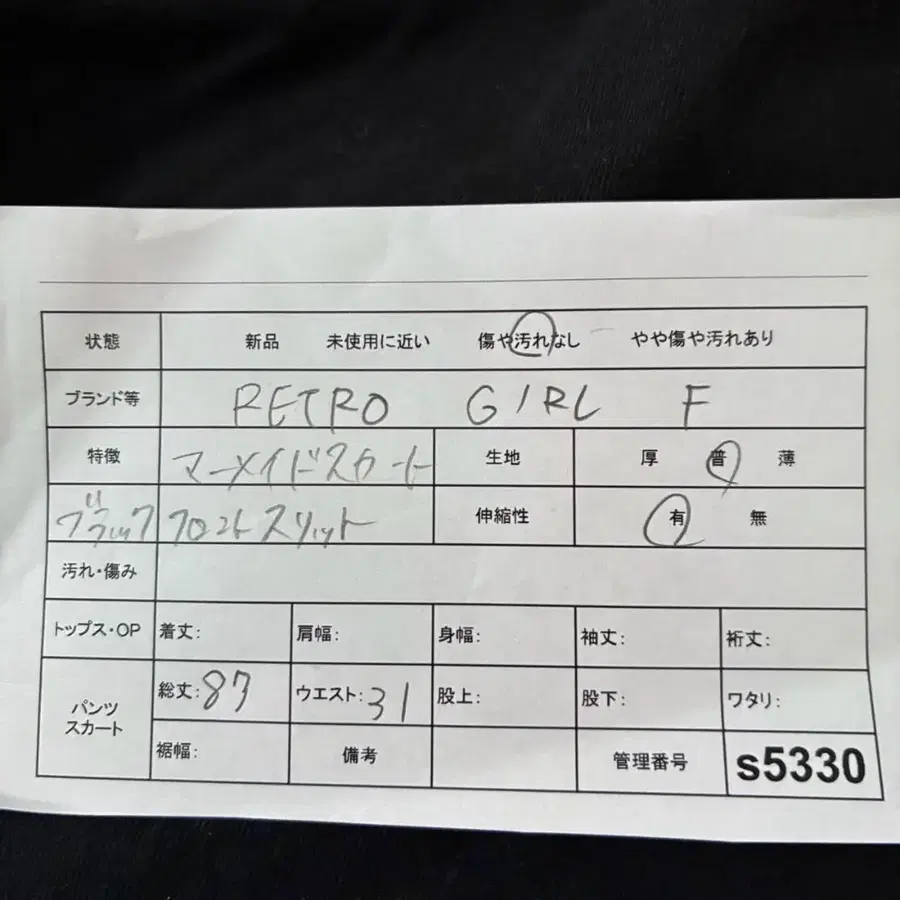 状態 新品 未使用に近い 傷や汚れなし やや傷や汚れあり
ブランド等 RETRO GIRL F
特徴 マーメイドスカート 生地 厚 普 薄
ブラック フロントスリット 伸縮性 有 無
汚れ・傷み
トップス・OP 着丈: 肩幅: 身幅: 袖丈: 裄丈:
パンツ スカート 総丈:87 ウエスト:31 股上: 股下: ワタリ:
裾幅: 備考 管理番号 s5330